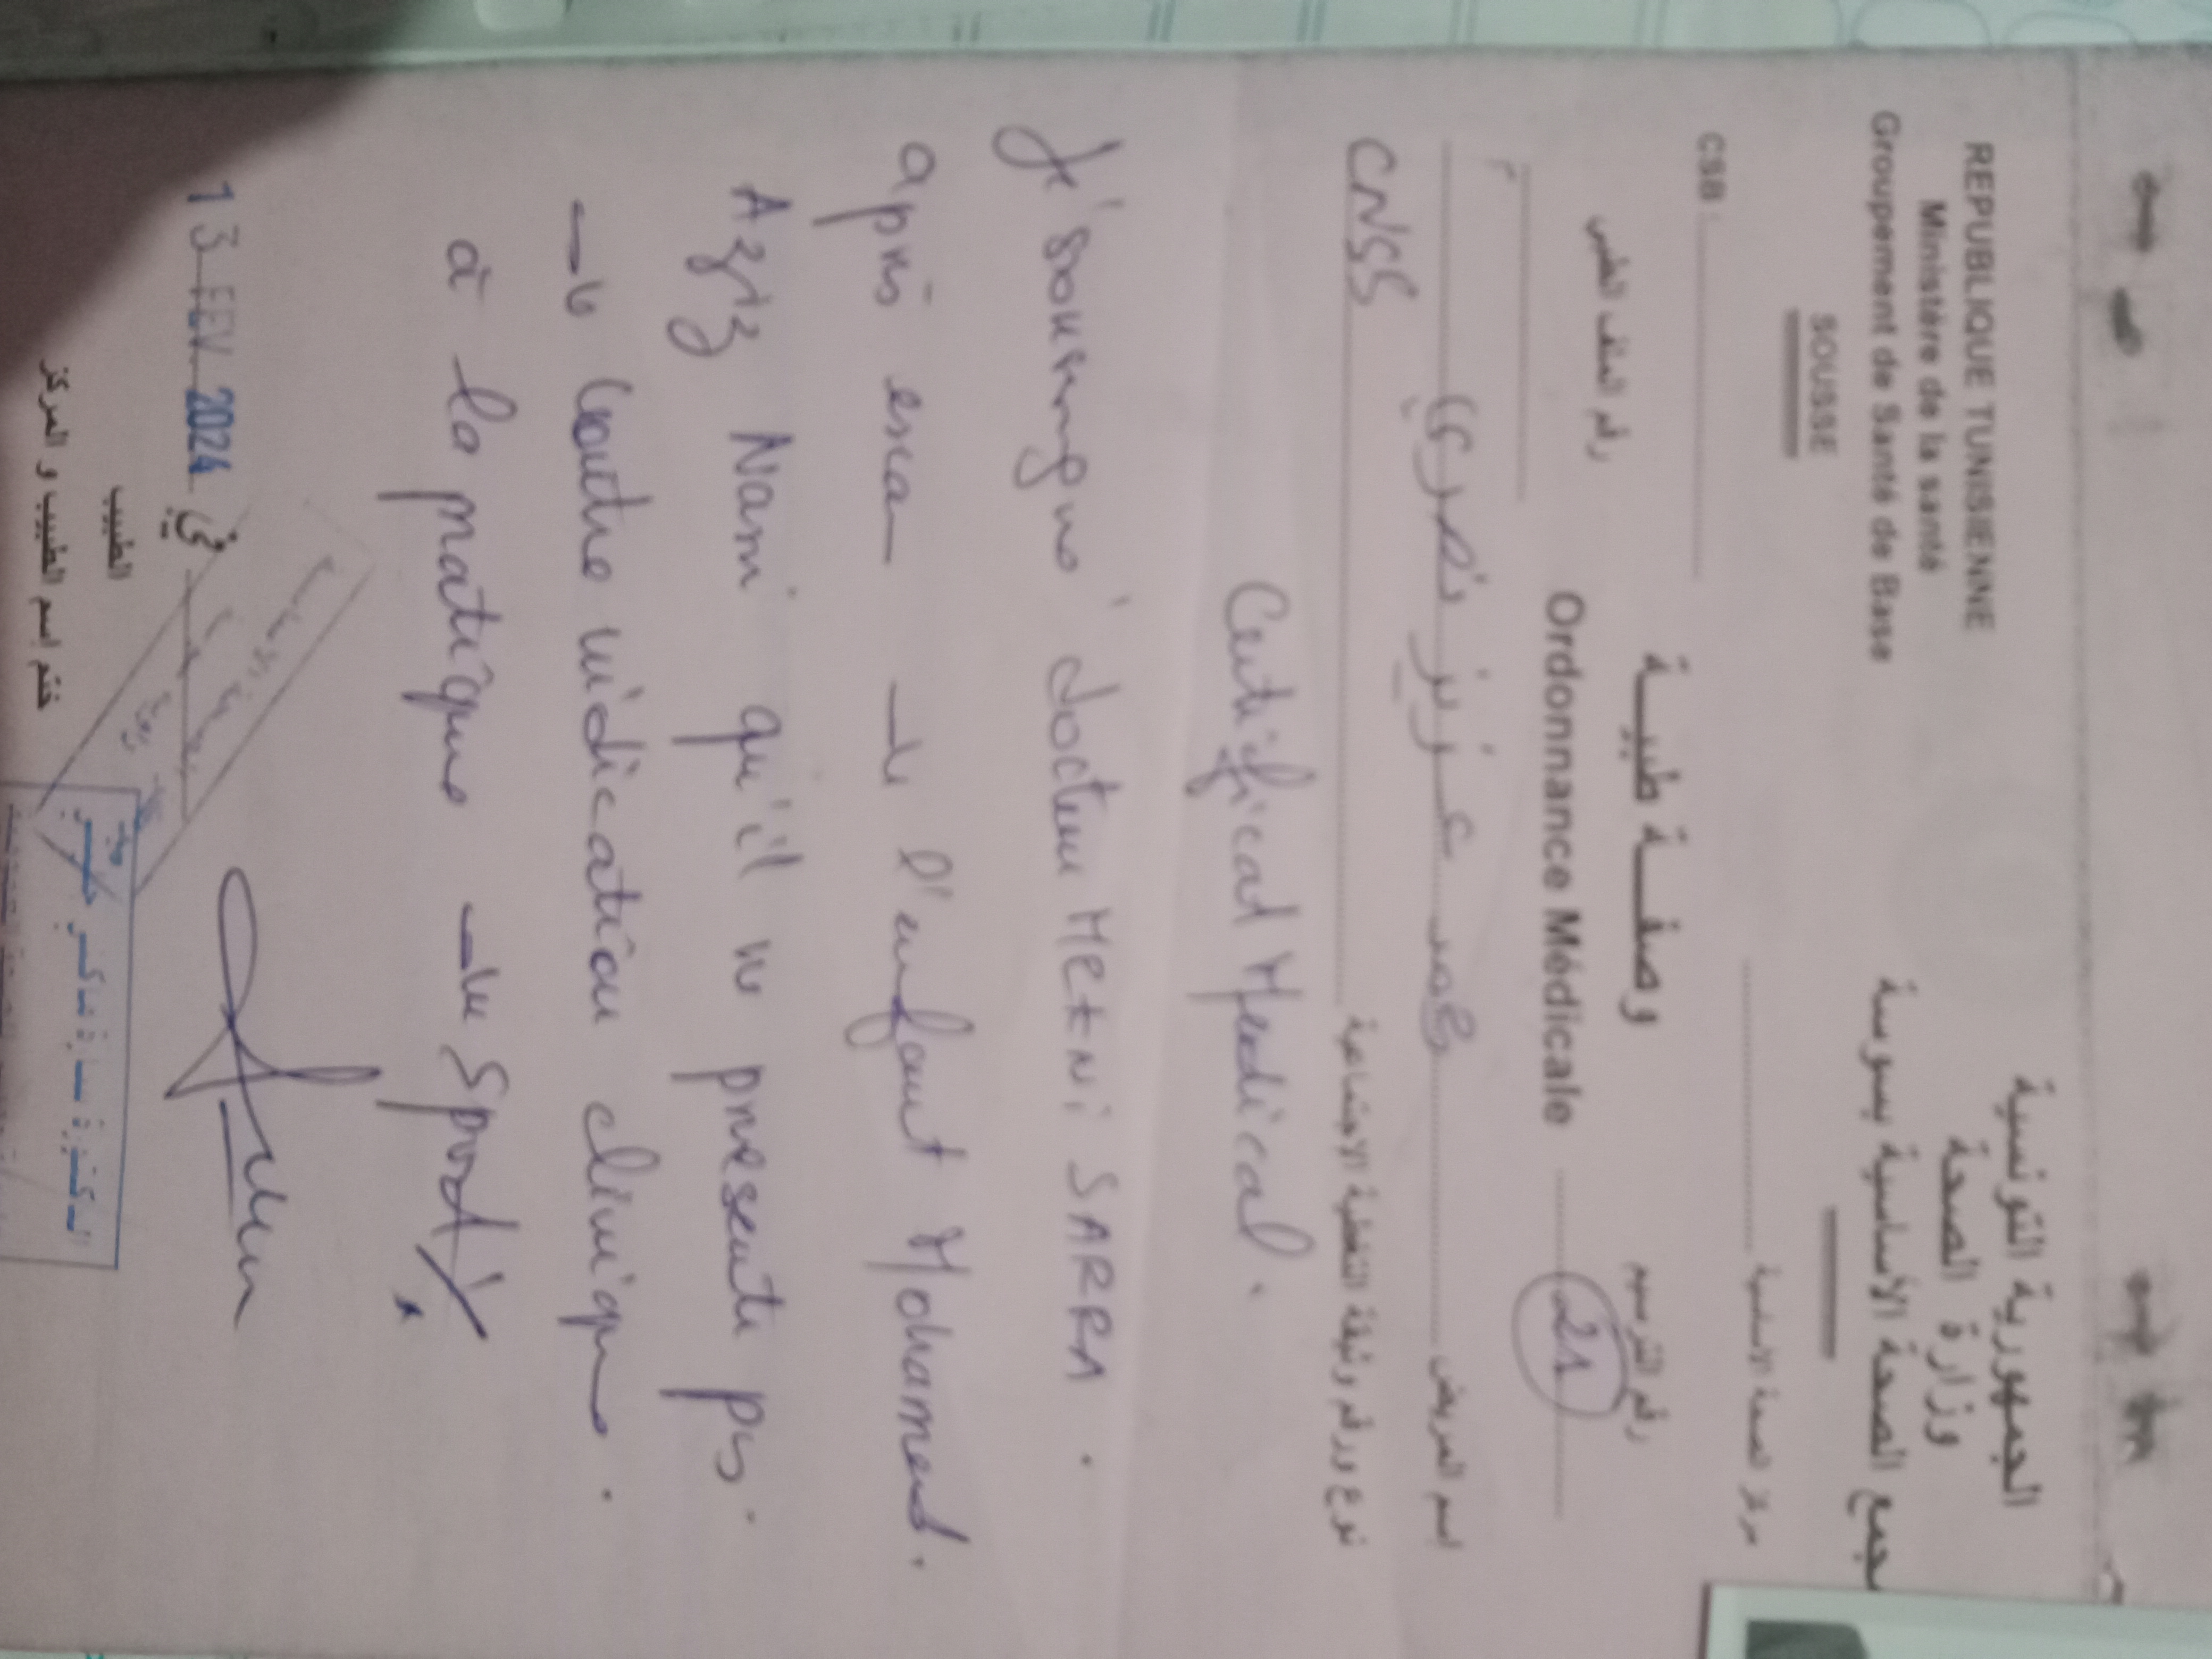 REPUBLIQUE TUNISIENNE
Ministère de la santé
Groupement de Santé de Base
SOUSSE
الجمهورية التونسية
وزارة الصحة
مجمع الصحة الأساسية بسوسة
CSB : مركز الصحة الاساسية
وصفة طبية
Ordonnance Médicale
رقم الملف الطبي
رقم الترسيم
21
اسم المريض محمد عزيز نصري
نوع ورقم وثيقة التغطية الاجتماعية CNSS
Certificat Medical.
Je soussigné docteur MEKNI SARRA.
après exam de l'enfant Mohamed.
Aziz qu'il ne présente ps.
de contre indication clinique.
à la pratique du Sport
13 FEV. 2024 في
الطبيب
ختم اسم الطبيب و المركز
الدكتورة سارة